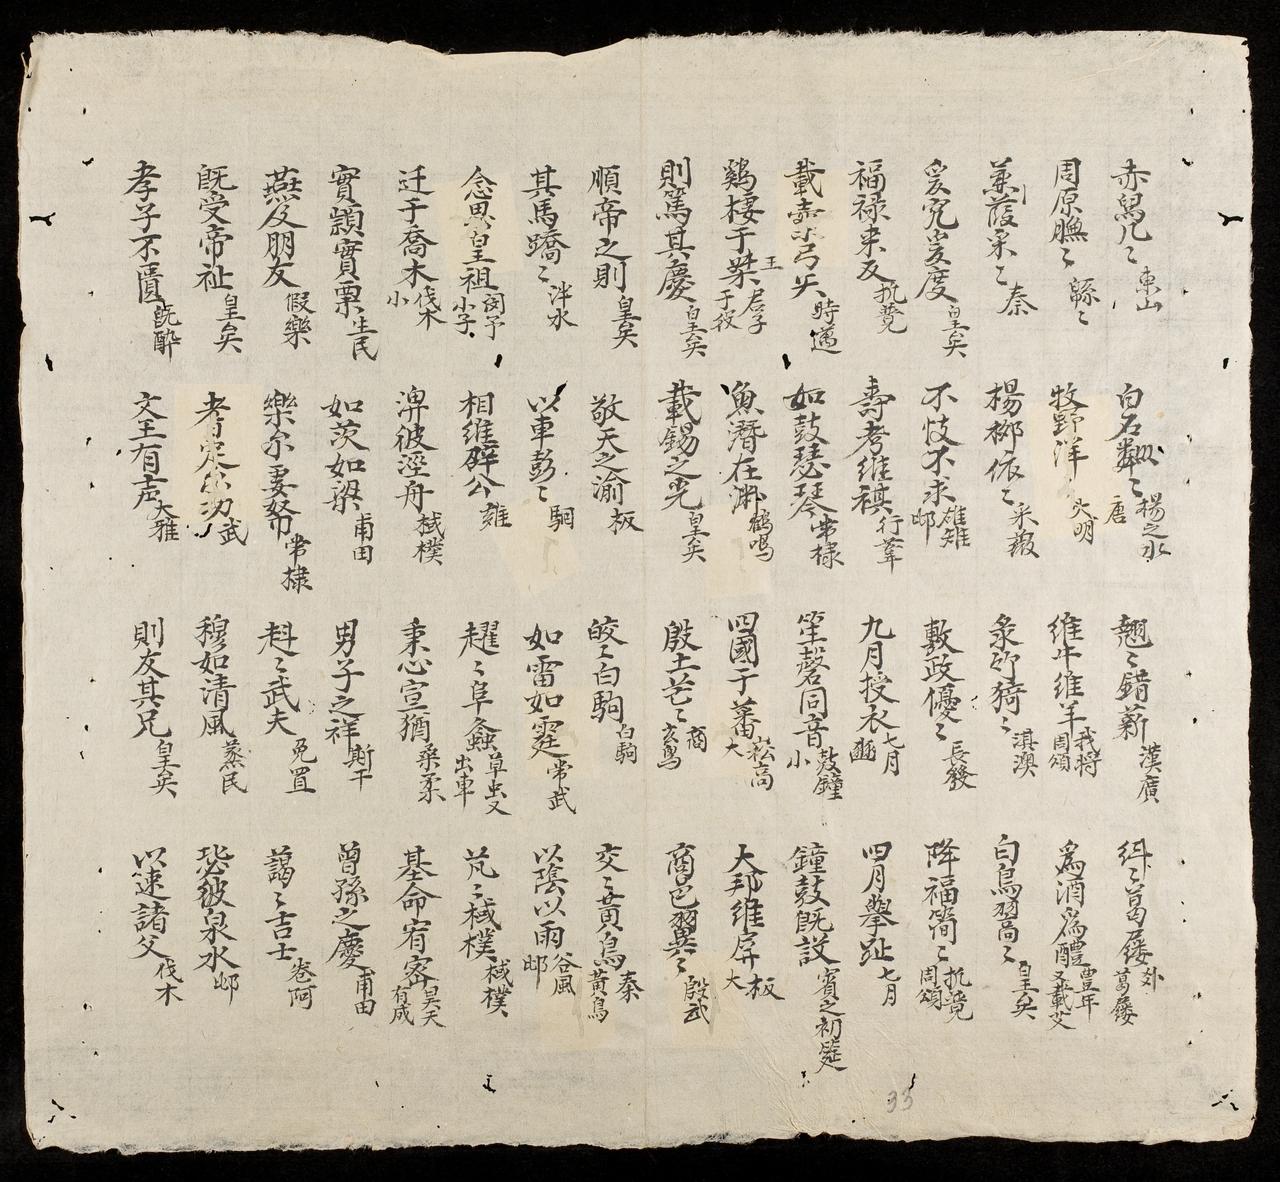 赤舄几〻 東山 白石粼〻 楊之水 唐 翹〻錯薪 漢廣 糾〻葛屨 外 葛屨
周原膴〻 緜〻 牧野洋〻 大明 維牛維羊 我將 周頌 為酒為醴 豊年 又載芟
蒹葭采〻 秦 楊栁依〻 采薇 菉竹猗〻 淇澳 白鳥翯〻 皇矣
爰究爰度 皇矣 不忮不求 雄雉 邶 敷政優〻 長發 降福簡〻 執競 周頌
福禄来反 執競 壽考維祺 行葦 九月授衣 七月 豳 四月擧趾 七月
載櫜弓矢 時邁 如鼓瑟琴 常棣 笙磬同音 鼓鐘 小 鐘鼓既設 賓之初筵
鷄棲于桀 王 君子于役 魚潛在淵 鶴鳴 四國于蕃 崧高 大 大邦維屏 板 大
則篤其慶 皇矣 載錫之光 皇矣 殷土芒〻 商 玄鳥 商邑翼〻 殷武
順帝之則 皇矣 敬天之渝 板 皎〻白駒 白駒 交〻黄鳥 秦 黄鳥
其馬蹻〻 泮水 以車彭〻 駉 如雷如霆 常武 以陰以雨 谷風 邶
念思皇祖 閔予小子 相維辟公 雝 趯〻阜螽 草虫又出車 芃〻棫樸 棫樸
迁于喬木 伐木 小 淠彼涇舟 棫樸 秉心宣猶 桑柔 基命宥密 昊天有成
實穎實栗 生民 如茨如梁 甫田 男子之祥 斯干 曾孫之慶 甫田
燕及朋友 假樂 樂尓妻帑 常棣 赳〻武夫 兔罝 藹〻吉士 卷阿
既受帝祉 皇矣 耆定尓功 武 穆如清風 蒸民 毖彼泉水 邶
孝子不匱 既醉 文王有声 大雅 則友其兄 皇矣 以速諸父 伐木
33